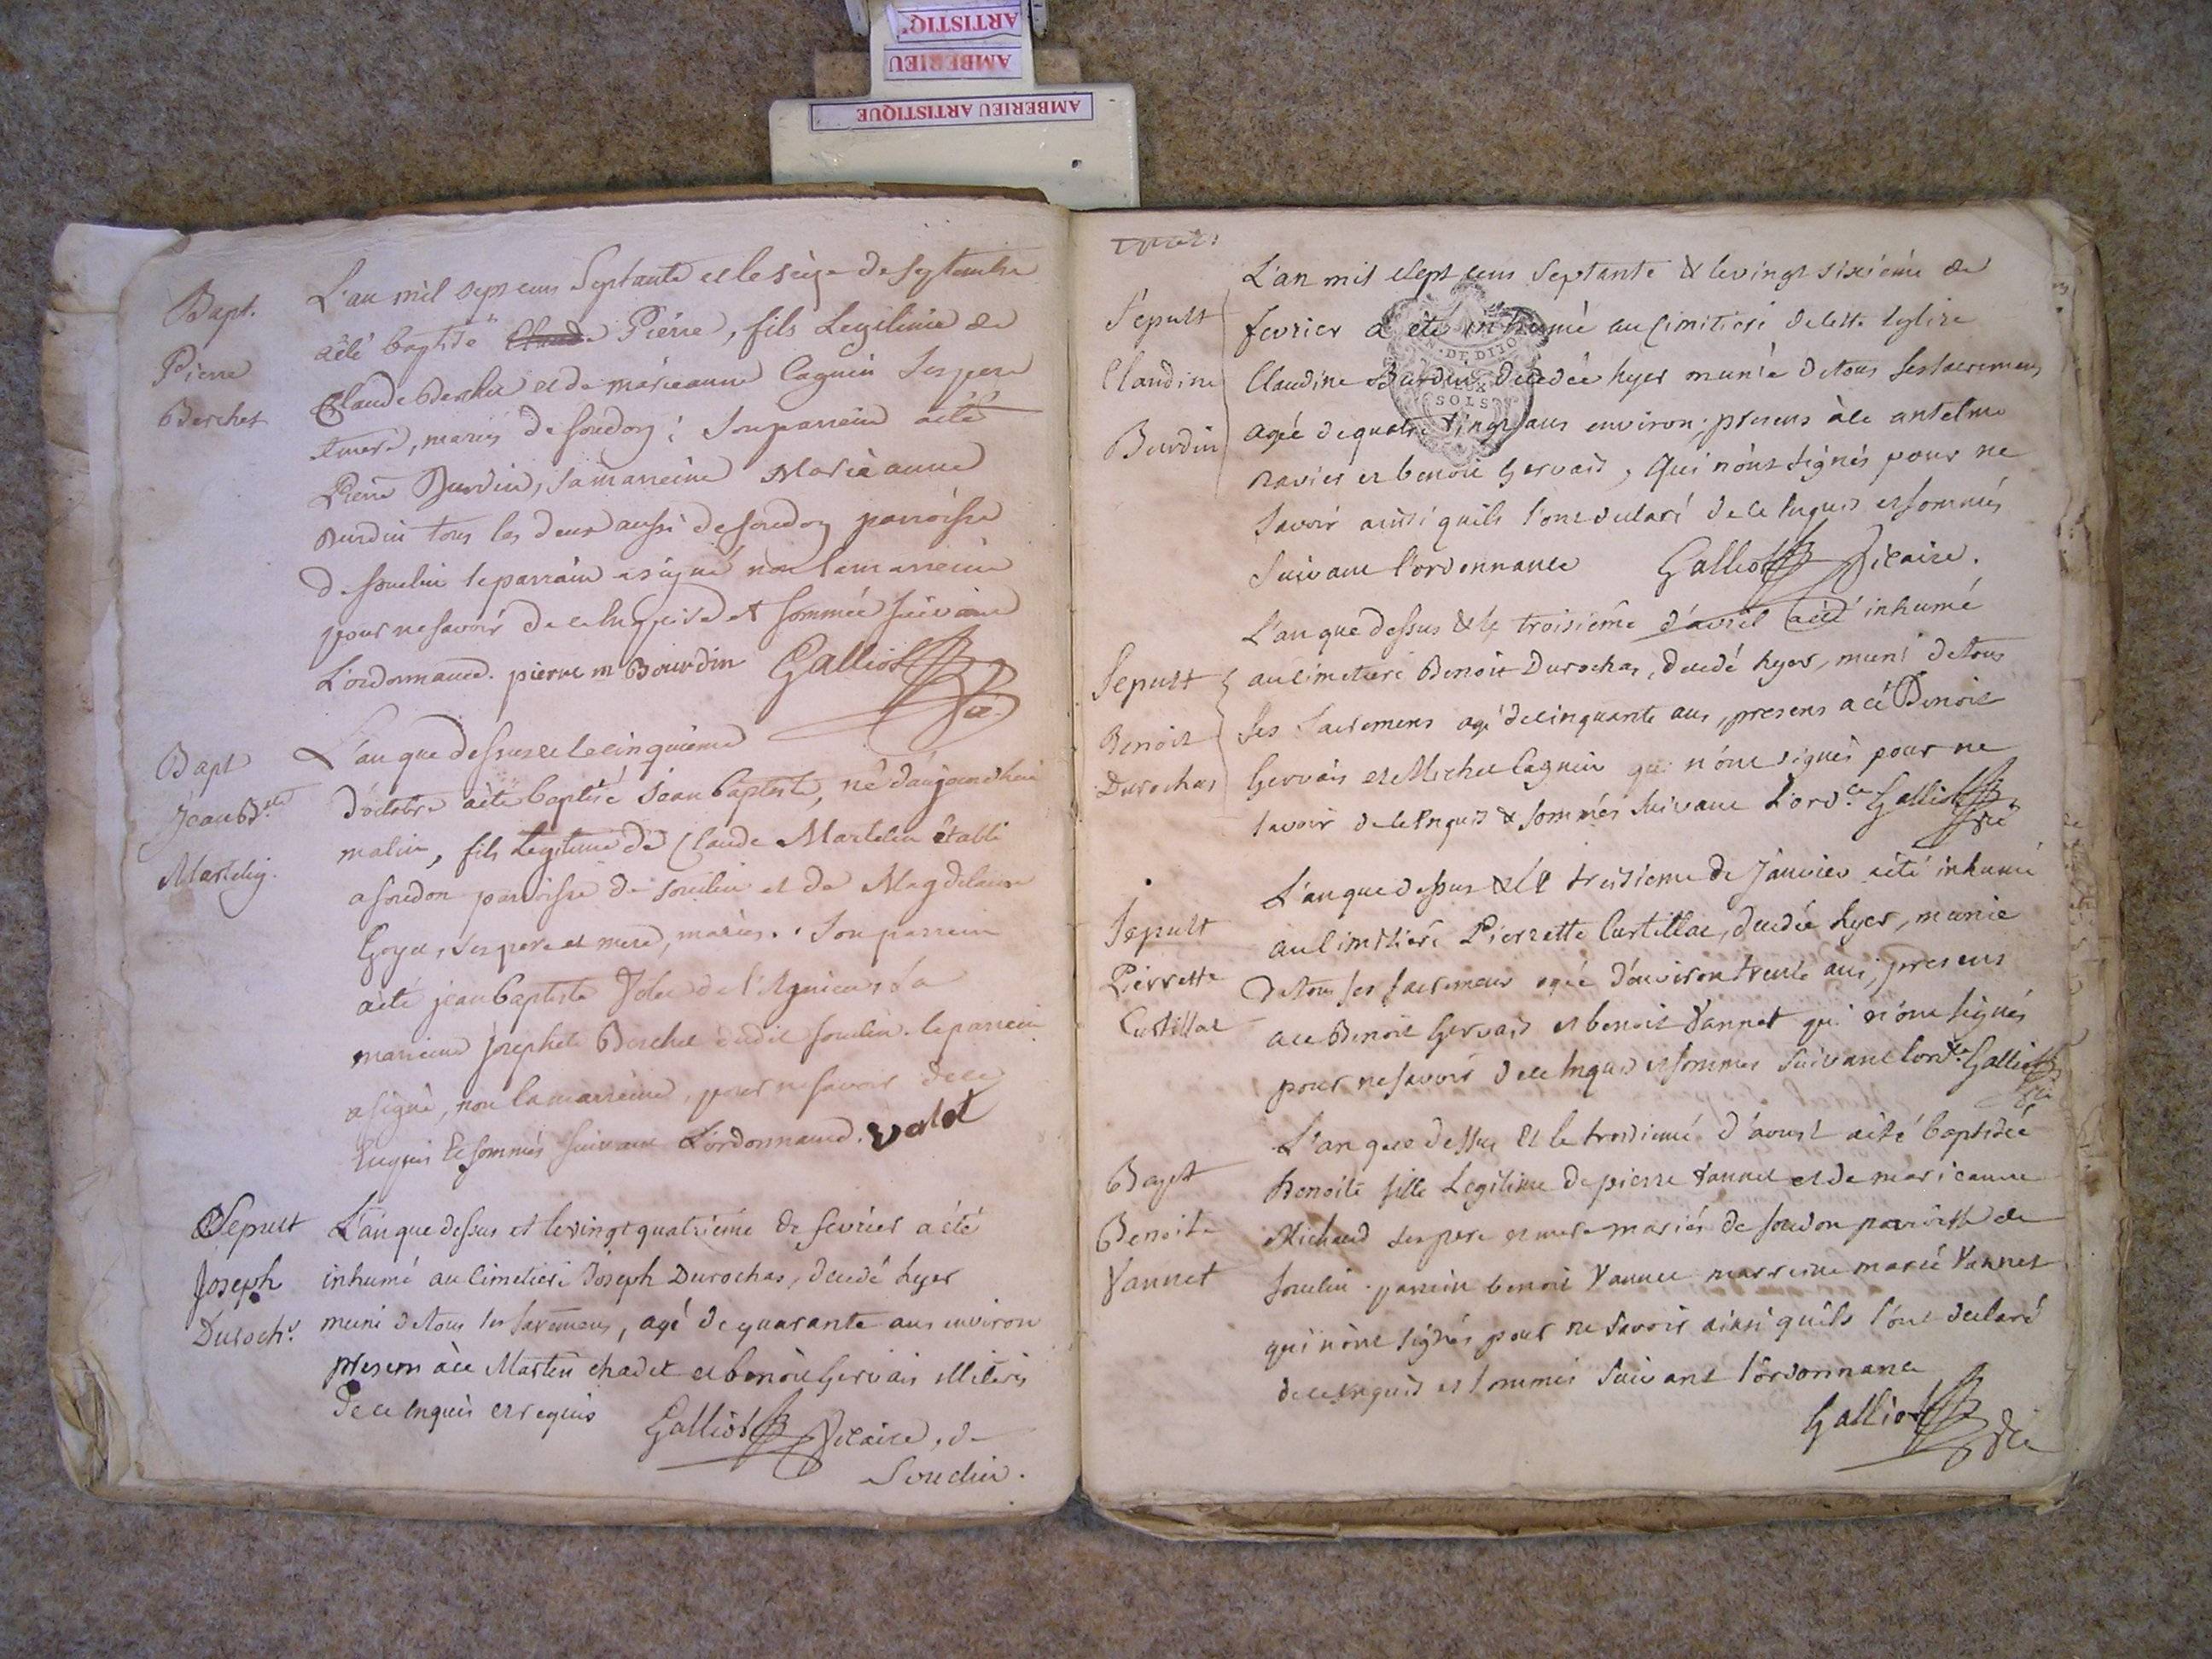 ARTISTIQ
AMBERIEU
AMBERIEU ARTISTIQUE
Bapt.
Pierre
Berchet
L'an mil sept cens Septante et le seize de septembre
a été baptisé Claude Pierre, fils Legitime de
Claude Berchet et de marieanne Cagnin Ses pere
et mere, mariés de soudon; Son parrein a été
Pierre Burdin, sa marreine Marie anne
Burdin tous les deux aussi de soudon parroisse
de souclin le parrain a signé non la marreine
pour ne savoir de ce Enquise et Sommée suivant
L'ordonnance. pierre m Bourdin Galliot
vic.
Bapt
Jean B.te
Martelin.
L'an que dessus et le cinquieme
d'octobre a été baptisé Jean baptiste, né d'aujourdhui
matin, fils Legitime de Claude Martelin établi
a soudon parroisse de souclin et de Magdelaine
Goyet, ses pere et mere, mariés. Son parrein
a été jean baptiste de l'Agnieu, sa
marreine josephte Berchet dudit souclin. le parrein
a signé, non la marreine, pour ne savoir de ce
Enquis et sommés suivant L'ordonnance.
Sepult
Joseph
Duroch.
L'an que dessus et le vingt quatrieme de fevrier a été
inhumé au cimetiere Joseph Durochas, decedé hyer
muni de tous ses sacremens, agé de quarante ans environ
presens à ce Martin chadet et benoit Gervais illiterés
de ce enquis et requis Galliot Vicaire, de
Souclin.
Sepult
Claudine
Burdin
L'an mil sept cens Septante & le vingt sixiéme de
fevrier a été inhumé au cimitiere de cette Eglise
Claudine Burdin, decedée hyer munie de tous ses sacremens
agée de quatre vingt ans environ; presens à ce antelme
ravier et benoit Gervais, Qui n'ont signés pour ne
savoir ainsi quils l'ont declaré de ce Enquis et sommés
suivant l'ordonnance Galliot Vicaire.
DE DIJO
SOLS
Sepult
Benoit
Durochas
L'an que dessus & le troisième d'avril a été inhumé
au cimetiere Benoit Durochas, decedé hyer, muni de tous
ses sacremens agé de cinquante ans, presens a ce Benoit
Gervais et Michel Cagnin qui n'ont signés pour ne
savoir de ce Enquis & sommés suivant L'ord.ce Galliot
vic
Sepult
Pierrette
Curtillat
L'an que dessus & le treisieme de Janvier a été inhumé
au cimitiere Pierrette Curtillat, decedée hyer, munie
de tous ses sacremens agée d'environ trente ans, presens
a ce Benoit Gervais et benoit Vannet qui n'ont signés
pour ne savoir de ce Enquis et sommés suivant l'ord.ce Galliot
vic
Bapt
Benoite
Vannet
L'an que dessus et le troisieme d'aoust a été baptisée
Benoite fille Legitime de pierre Vannet et de marieanne
Michaud ses pere et mere mariés de soudon parroisse de
souclin. parrein benoit Vannet marreine marie Vannet
qui n'ont signés pour ne savoir ainsi quils l'ont declaré
de ce enquis et sommés suivant l'ordonnance
Galliot vic